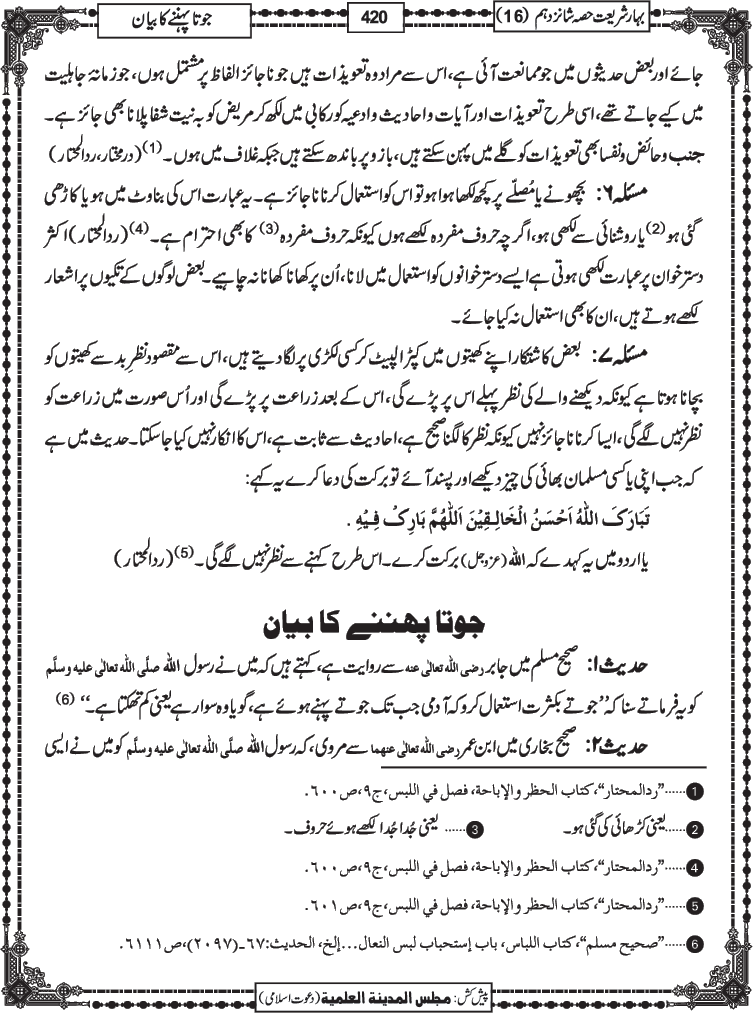 بہار شریعت حصہ شانزدہم (16)
420
جوتا پہننے کا بیان
جائے اور بعض حدیثوں میں جو ممانعت آئی ہے، اس سے مراد وہ تعویذات ہیں جو ناجائز الفاظ پر مشتمل ہوں، جو زمانۂ جاہلیت
میں کیے جاتے تھے، اسی طرح تعویذات اور آیات و احادیث و ادعیہ کو رکابی میں لکھ کر مریض کو بہ نیت شفا پلانا بھی جائز ہے۔
جنب و حائض و نفسا بھی تعویذات کو گلے میں پہن سکتے ہیں، بازو پر باندھ سکتے ہیں جبکہ غلاف میں ہوں۔(1) (درمختار، ردالمحتار)
مسئلہ ۶: بچھونے یا مُصلّے پر کچھ لکھا ہوا ہو تو اس کو استعمال کرنا ناجائز ہے۔ یہ عبارت اس کی بناوٹ میں ہو یا کاڑھی
گئی ہو(2) یا روشنائی سے لکھی ہو، اگرچہ حروف مفردہ لکھے ہوں کیونکہ حروف مفردہ (3) کا بھی احترام ہے۔(4) (ردالمحتار) اکثر
دسترخوان پر عبارت لکھی ہوتی ہے ایسے دسترخوانوں کو استعمال میں لانا، اُن پر کھانا کھانا نہ چاہیے۔ بعض لوگوں کے تکیوں پر اشعار
لکھے ہوتے ہیں، ان کا بھی استعمال نہ کیا جائے۔
مسئلہ ۷: بعض کاشتکار اپنے کھیتوں میں کپڑا لپیٹ کر کسی لکڑی پر لگا دیتے ہیں، اس سے مقصود نظرِ بد سے کھیتوں کو
بچانا ہوتا ہے کیونکہ دیکھنے والے کی نظر پہلے اس پر پڑے گی، اس کے بعد زراعت پر پڑے گی اور اُس صورت میں زراعت کو
نظر نہیں لگے گی، ایسا کرنا ناجائز نہیں کیونکہ نظر کا لگنا صحیح ہے، احادیث سے ثابت ہے، اس کا انکار نہیں کیا جاسکتا۔ حدیث میں ہے
کہ جب اپنی یا کسی مسلمان بھائی کی چیز دیکھے اور پسند آئے تو برکت کی دعا کرے یہ کہے:
تَبَارَکَ اللّٰہُ اَحْسَنُ الْخَالِقِیْنَ اَللّٰھُمَّ بَارِکْ فِیْہِ .
یا اردو میں یہ کہدے کہ اللہ (عزوجل) برکت کرے۔ اس طرح کہنے سے نظر نہیں لگے گی۔(5) (ردالمحتار)
جوتا پھننے کا بیان
حدیث ۱: صحیح مسلم میں جابر رضی اللہ تعالٰی عنہ سے روایت ہے، کہتے ہیں کہ میں نے رسول اللہ صلَّی اللہ تعالٰی علیہ وسلَّم
کو یہ فرماتے سنا کہ ”جوتے بکثرت استعمال کرو کہ آدمی جب تک جوتے پہنے ہوئے ہے، گویا وہ سوار ہے یعنی کم تھکتا ہے۔“ (6)
حدیث ۲: صحیح بخاری میں ابن عمر رضی اللہ تعالٰی عنھما سے مروی، کہ رسول اللہ صلَّی اللہ تعالٰی علیہ وسلَّم کو میں نے ایسی
1......”ردالمحتار“، کتاب الحظر والإباحۃ، فصل في اللبس، ج۹، ص۶۰۰.
2......یعنی کڑھائی کی گئی ہو۔ 3...... یعنی جُدا جُدا لکھے ہوئے حروف۔
4......”ردالمحتار“، کتاب الحظر والإباحۃ، فصل في اللبس، ج۹، ص۶۰۰.
5......”ردالمحتار“، کتاب الحظر والإباحۃ، فصل في اللبس، ج۹، ص۶۰۱.
6......”صحیح مسلم“، کتاب اللباس، باب إستحباب لبس النعال...إلخ، الحدیث:۶۷۔(۲۰۹۷)، ص۶۱۱۱.
پیش کش: مجلس المدینۃ العلمیۃ (دعوت اسلامی)